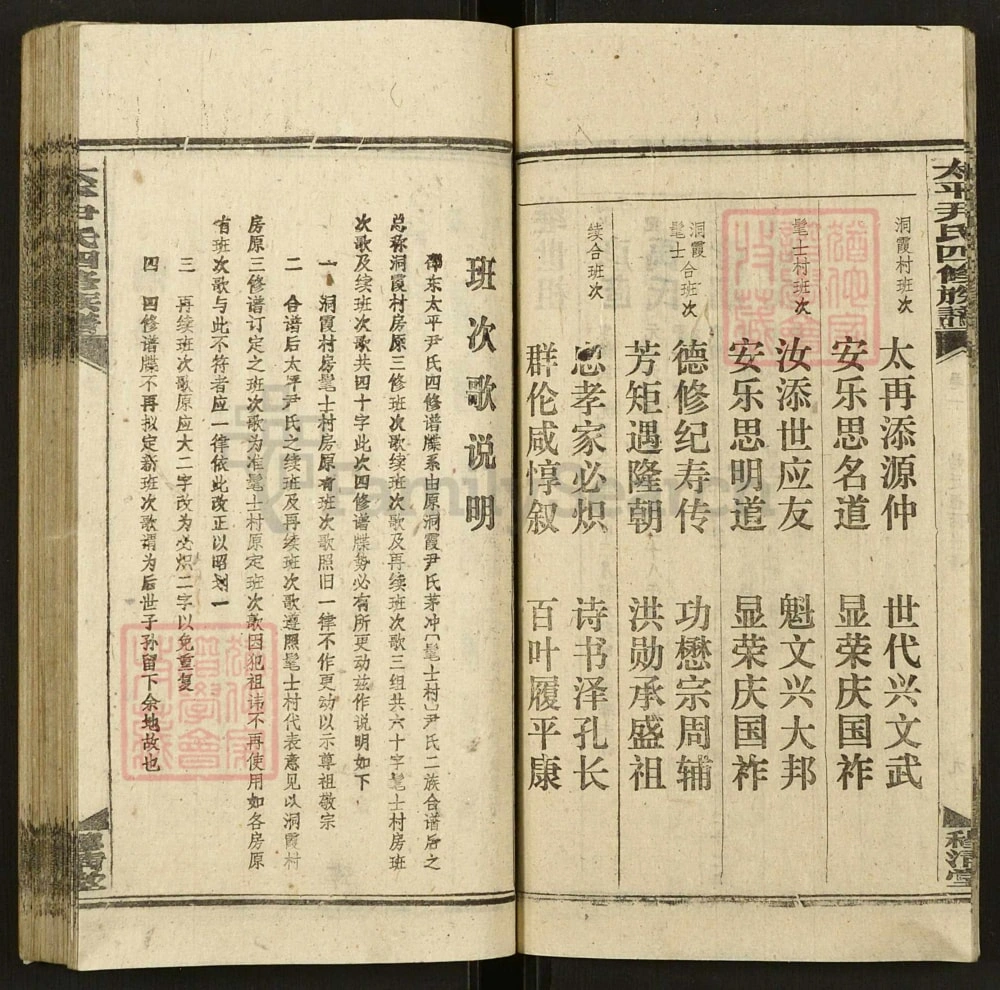 太平尹氏四修族谱
穆清堂
洞霞村班次
太再添源仲 世代兴文武
安乐思名道 显荣庆国祚
髦士村班次
汝添世应友 魁文兴大邦
安乐思明道 显荣庆国祚
洞霞髦士合班次
德修纪寿传 功懋宗周辅
芳矩遇隆朝 洪勋承盛祖
续合班次
忠孝家必炽 诗书泽孔长
群伦咸惇叙 百叶履平康
班次歌说明
潭东太平尹氏四修谱牒系由原洞霞尹氏茅冲〔髦士村〕尹氏二族合谱后之
总称洞霞村房原三修班次歌续班次歌及再续班次歌三组共六十字髦士村房班
次歌及续班次歌共四十字此次四修谱牒势必有所更动兹作说明如下
一 洞霞村房髦士村房原有班次歌照旧一律不作更动以示尊祖敬宗
二 合谱后太平尹氏之续班及再续班次歌遵照髦士村代表意见以洞霞村
房原三修谱订定之班次歌为准髦士村原定班次歌因犯祖讳不再使用如各房原
有班次歌与此不符者应一律依此改正以昭划一
三 再续班次歌原应大二字改为必炽二字以免重复
四 四修谱牒不再拟定新班次歌谓为后世子孙留下余地故也
太平尹氏四修族谱
穆清堂